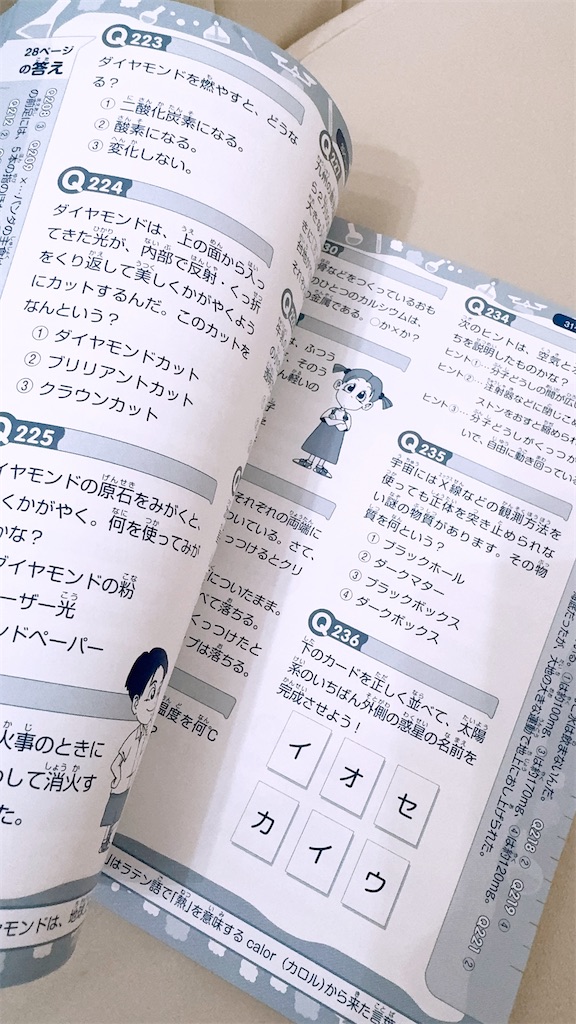 28ページ
の答え
Q208 ③ Q209 ×…パンダの手首
Q212 ②
Q223
ダイヤモンドを燃やすと、どうな
る？
① 二酸化炭素になる。
② 酸素になる。
③ 変化しない。
Q224
ダイヤモンドは、上の面から入っ
てきた光が、内部で反射・くっ折
をくり返して美しくかがやくよう
にカットするんだ。このカットを
なんという？
① ダイヤモンドカット
② ブリリアントカット
③ クラウンカット
Q225
イヤモンドの原石をみがくと、
くかがやく。何を使ってみが
かな？
ダイヤモンドの粉
ーザー光
ンドペーパー
火事のときに
して消火す
た。
骨などをつくっているおも
のひとつのカルシウムは、
の金属である。○か×か？
は、ふつう
、そのう
ん軽いの
それぞれの両端に
ついている。さて、
っつけるとクリ
についたまま。
べて落ちる。
くっつけたと
プは落ちる。
温度を何℃
Q234
次のヒントは、空気と
ちを説明したものかな？
ヒント①…分子どうしの間が広
ヒント②…注射器などに閉じこめ
ストンをおすと縮められ
ヒント③…分子どうしがくっつか
いで、自由に動き回ってい
Q235
宇宙にはX線などの観測方法を
使っても正体を突き止められな
い謎の物質があります。その物
質を何という？
① ブラックホール
② ダークマター
③ ブラックボックス
④ ダークボックス
Q236
下のカードを正しく並べて、太陽
系のいちばん外側の惑星の名前を
完成させよう！
イ オ セ
カ イ ウ
①は約100mg、③は約170mg、④は約120mg。 Q218 ② Q219 ④
大地の大きな運動で地上におし上げられた。 Q221 ②
はラテン語で「熱」を意味する calor（カロル）から来た言葉